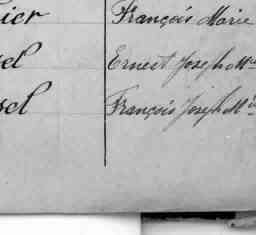 ier François Marie
el Ernest Joseph M
sel François Joseph M